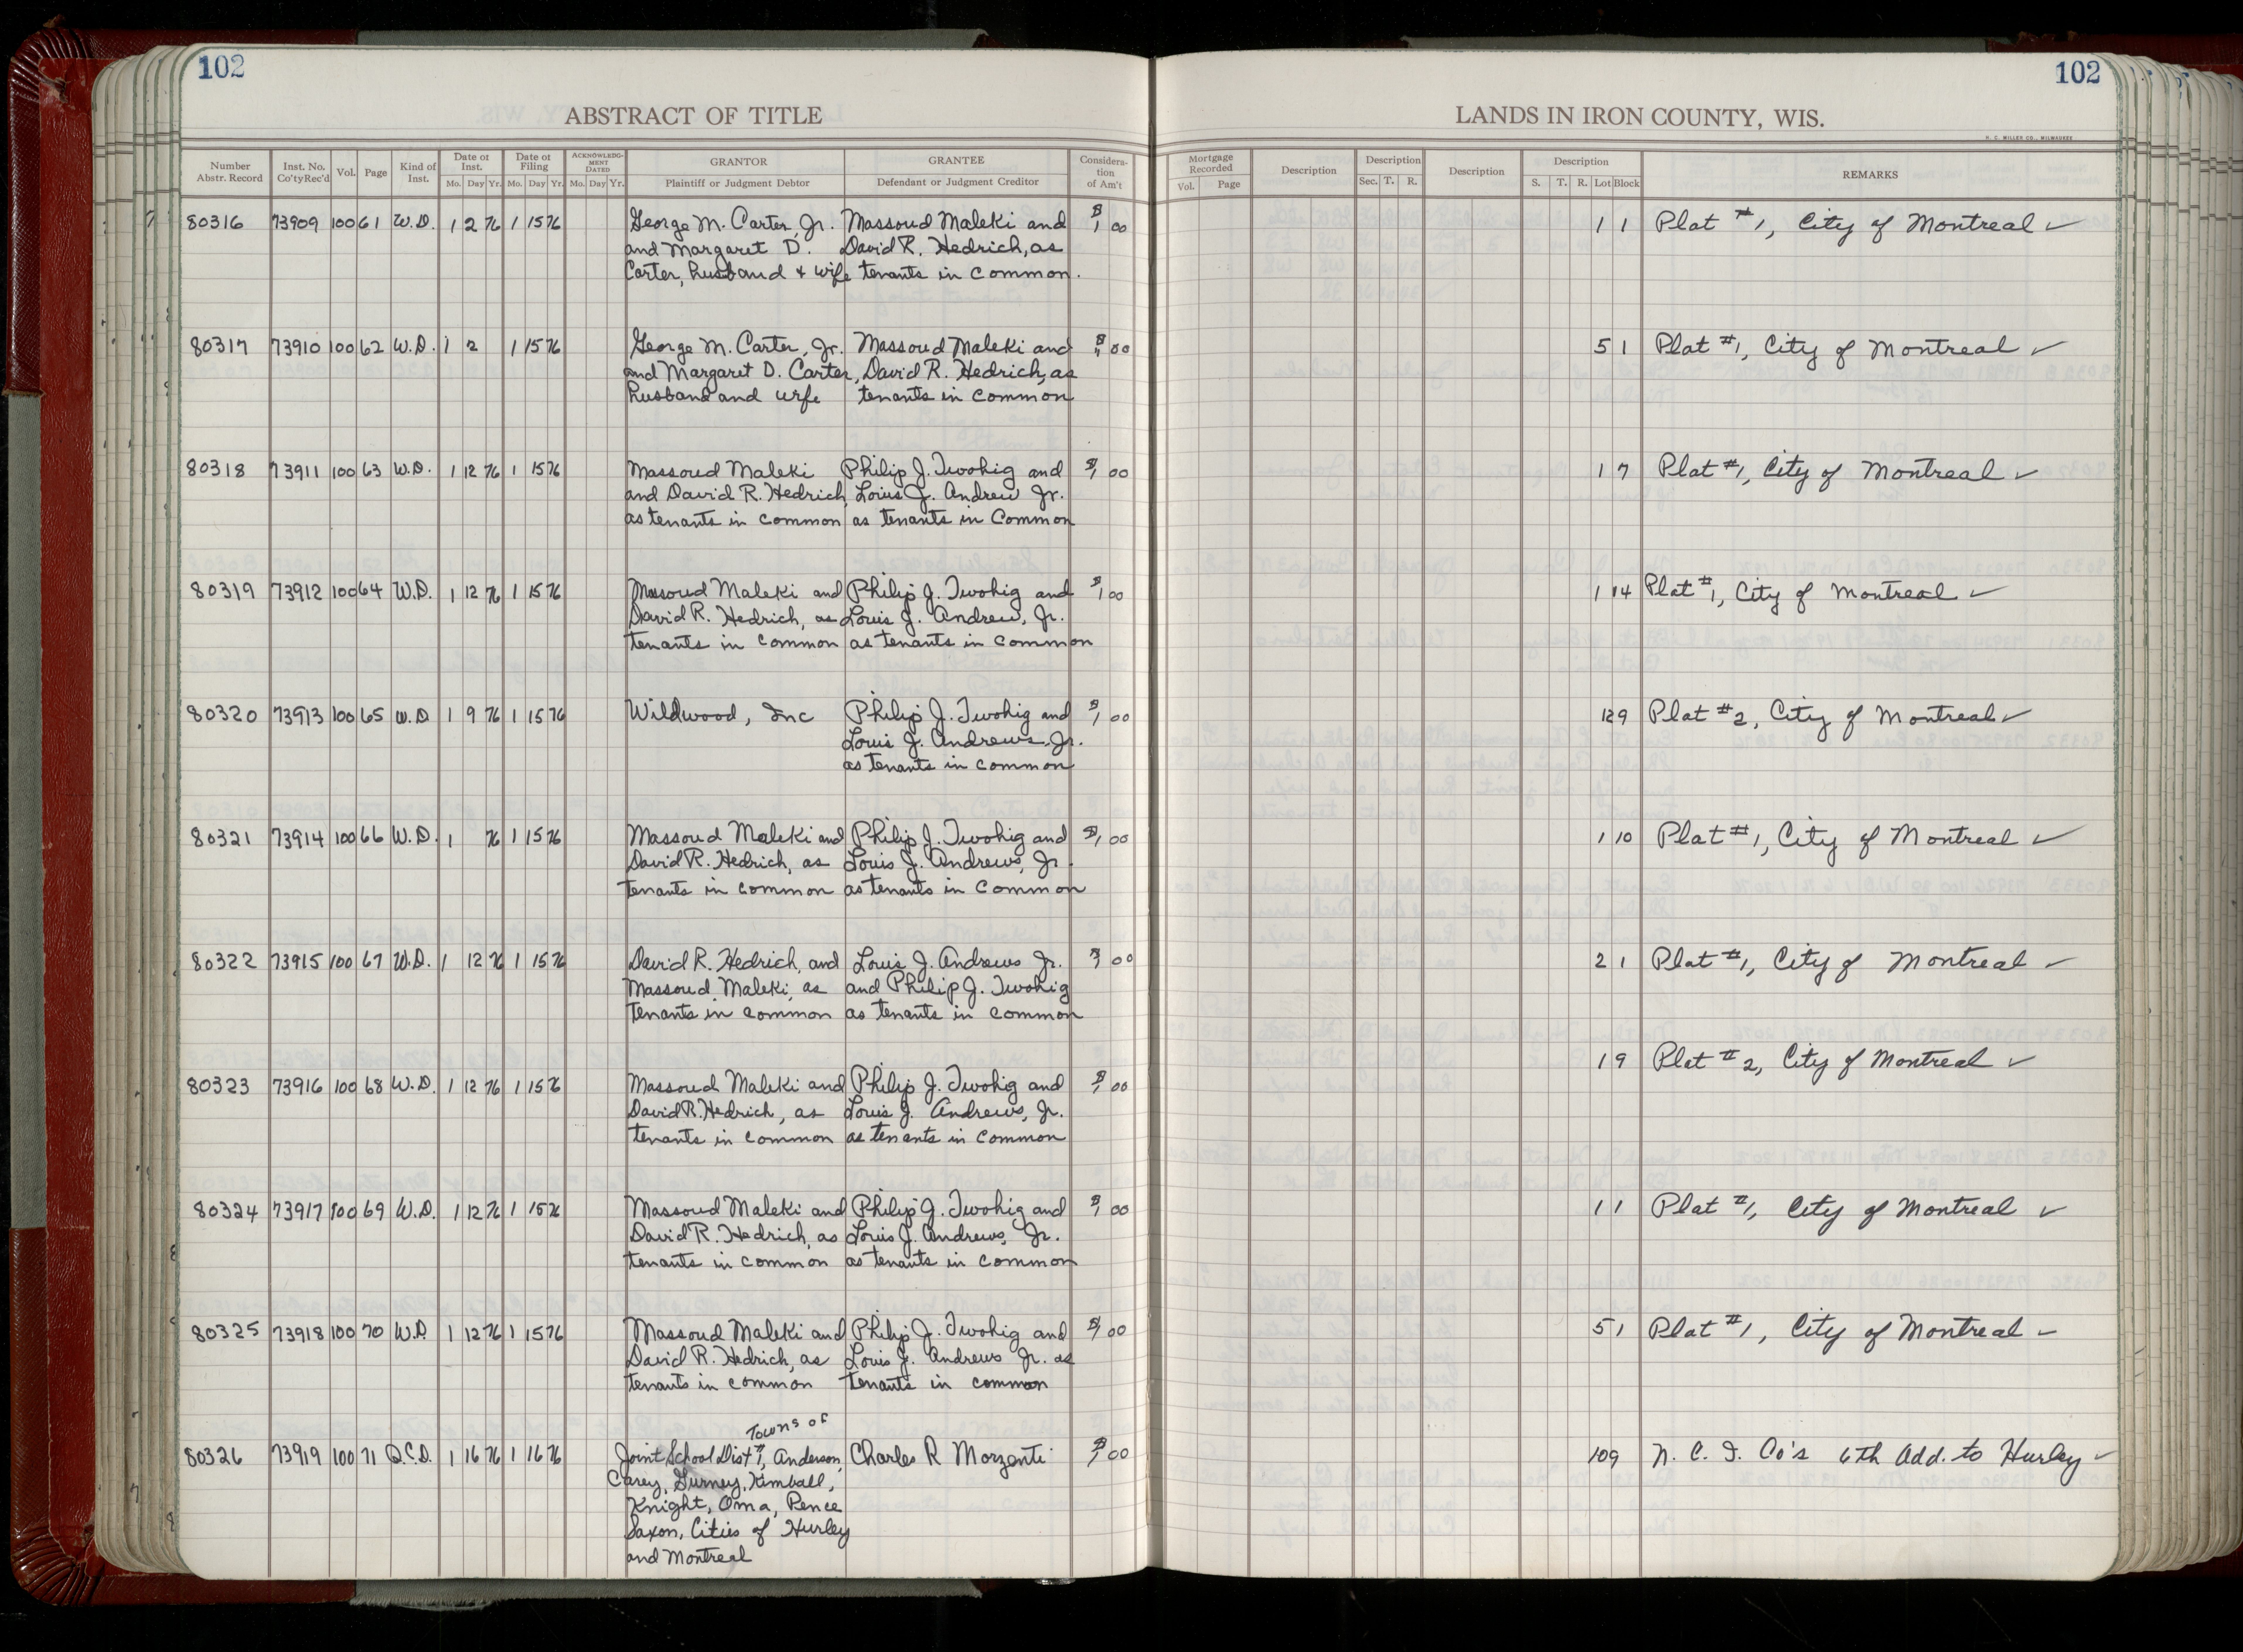 102
102
ABSTRACT OF TITLE
LANDS IN IRON COUNTY, WIS.
H. C. MILLER CO., MILWAUKEE
Number Abstr. Record | Inst. No. Co'tyRec'd | Vol. | Page | Kind of Inst. | Date of Inst. Mo. Day Yr. | Date of Filing Mo. Day Yr. | ACKNOWLEDGMENT DATED Mo. Day Yr. | GRANTOR Plaintiff or Judgment Debtor | GRANTEE Defendant or Judgment Creditor | Consideration of Am't | Mortgage Recorded Vol. Page | Description | Description Sec. T. R. | Description | Description S. T. R. Lot Block | REMARKS
80316 73909 100 61 W.D. 1 2 76 1 15 76 George M. Carter, Jr. Massoud Maleki and $1,00 1 1 Plat #1, City of Montreal ✓
and Margaret D. David R. Hedrich, as
Carter, husband + wife tenants in common.
80317 73910 100 62 W.D. 1 2 1 15 76 George M. Carter, Jr. Massoud Maleki and $1,00 5 1 Plat #1, City of Montreal ✓
and Margaret D. Carter, David R. Hedrich, as
husband and wife tenants in common
80318 73911 100 63 W.D. 1 12 76 1 15 76 Massoud Maleki Philip J. Twohig and $1,00 1 7 Plat #1, City of Montreal ✓
and David R. Hedrich Louis J. Andrew Jr.
as tenants in common as tenants in Common
80319 73912 100 64 W.D. 1 12 76 1 15 76 Massoud Maleki and Philip J. Twohig and $1,00 1 14 Plat #1, City of Montreal ✓
David R. Hedrich, as Louis J. Andrew, Jr.
tenants in common as tenants in common
80320 73913 100 65 W.D 1 9 76 1 15 76 Wildwood, Inc Philip J. Twohig and $1,00 12 9 Plat #2, City of Montreal ✓
Louis J. Andrews, Jr.
as tenants in common
80321 73914 100 66 W.D. 1 76 1 15 76 Massoud Maleki and Philip J. Twohig and $1,00 1 10 Plat #1, City of Montreal ✓
David R. Hedrich, as Louis J. Andrews, Jr.
tenants in common as tenants in common
80322 73915 100 67 W.D. 1 12 76 1 15 76 David R. Hedrich, and Louis J. Andrews Jr. $1,00 2 1 Plat #1, City of Montreal ✓
Massoud Maleki, as and Philip J. Twohig
tenants in common as tenants in common
1 9 Plat #2, City of Montreal ✓
80323 73916 100 68 W.D. 1 12 76 1 15 76 Massoud Maleki and Philip J. Twohig and $1,00
David R. Hedrich, as Louis J. Andrews, Jr.
tenants in common as tenants in common
80324 73917 100 69 W.D. 1 12 76 1 15 76 Massoud Maleki and Philip J. Twohig and $1,00 1 1 Plat #1, City of Montreal ✓
David R. Hedrich, as Louis J. Andrews, Jr.
tenants in common as tenants in common
80325 73918 100 70 W.D. 1 12 76 1 15 76 Massoud Maleki and Philip J. Twohig and $1,00 5 1 Plat #1, City of Montreal ✓
David R. Hedrich, as Louis J. Andrews Jr. as
tenants in common tenants in common
Towns of
80326 73919 100 71 Q.C.D. 1 16 76 1 16 76 Joint School Dist #1, Anderson, Charles R Morzenti $1,00 109 N. C. I. Co's 6th Add. to Hurley ✓
Carey, Gurney, Kimball,
Knight, Oma, Pence
Saxon, Cities of Hurley
and Montreal